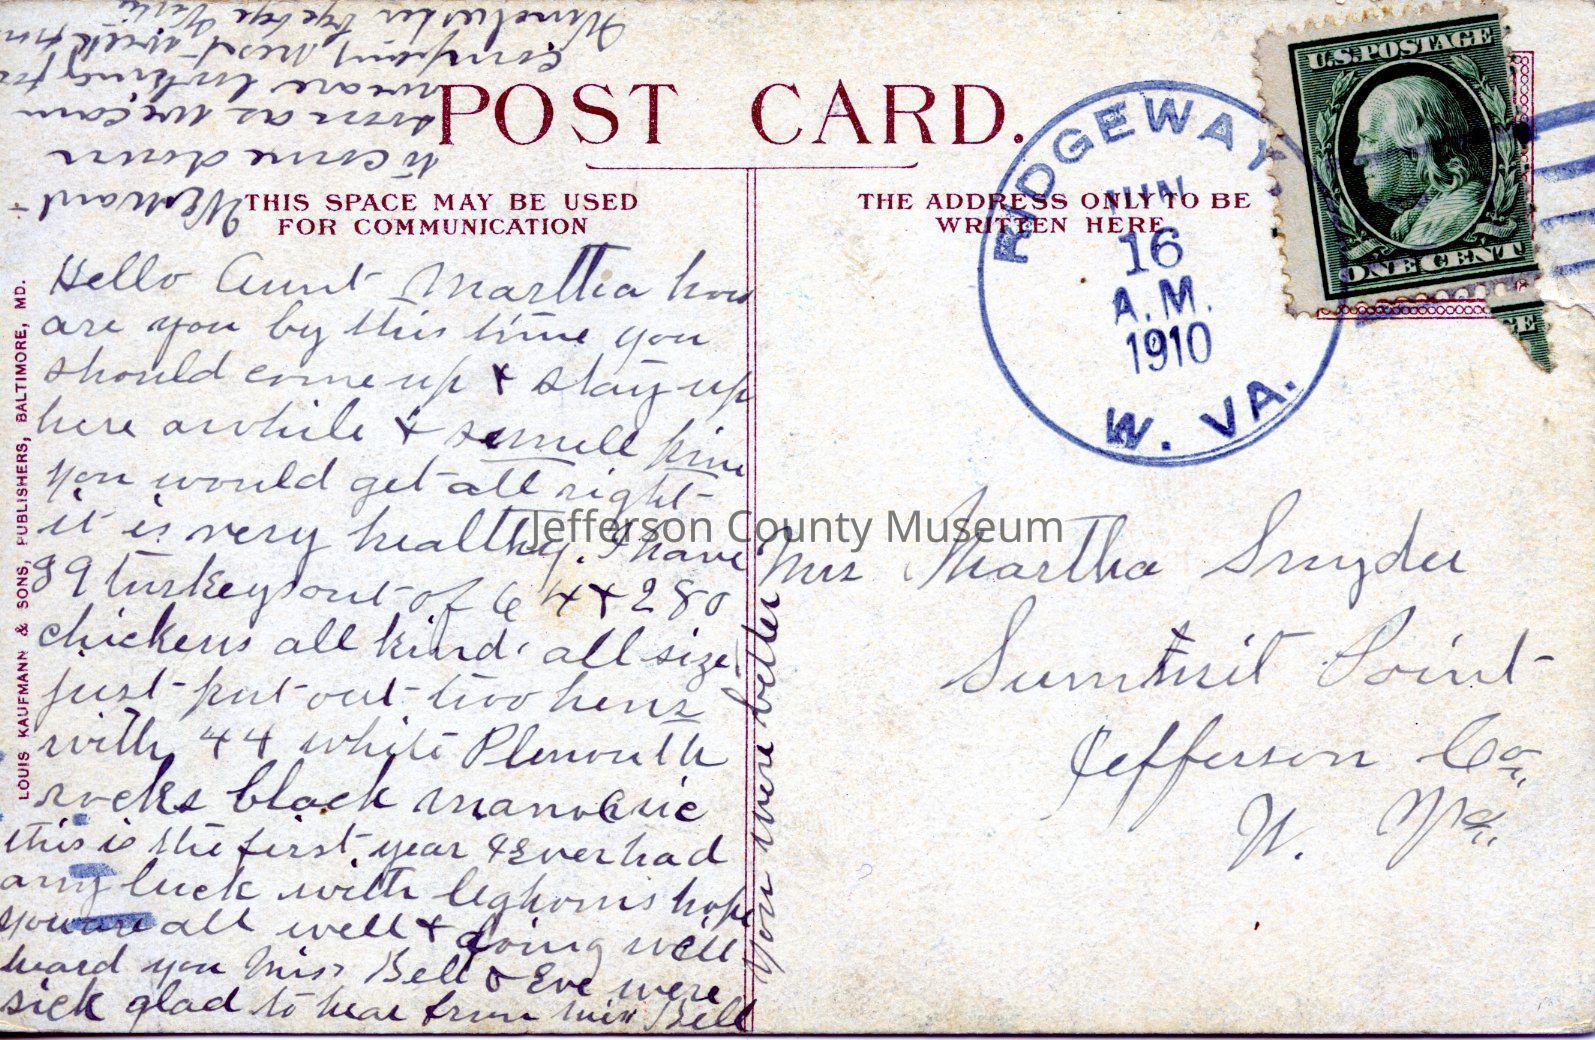 POST CARD.
THIS SPACE MAY BE USED
FOR COMMUNICATION
THE ADDRESS ONLY TO BE
WRITTEN HERE.
RIDGEWAY,
JUN
16
A.M.
1910
W. VA.
U.S. POSTAGE
ONE CENT
LOUIS KAUFMANN & SONS, PUBLISHERS, BALTIMORE, MD.
Hello Aunt Martha how
are you by this time you
should come up & stay up
here awhile & smell pine
you would get all right
it is very healthy. I have
39 turkeys out of 64 & 280
chickens all kind all size
just put out two hens
with 44 white Plemouth
rocks black
this is the first year I Ever had
any luck with leghorns hope
you are all well & doing well
heard you Miss Bell & Eve were
sick glad to hear from Miss Bell
you were better
to come down
soon as we can
we are looking for
company next week from
Jefferson County Museum
Mrs Martha Snyder
Summit Point
Jefferson Co.,
W. Va.